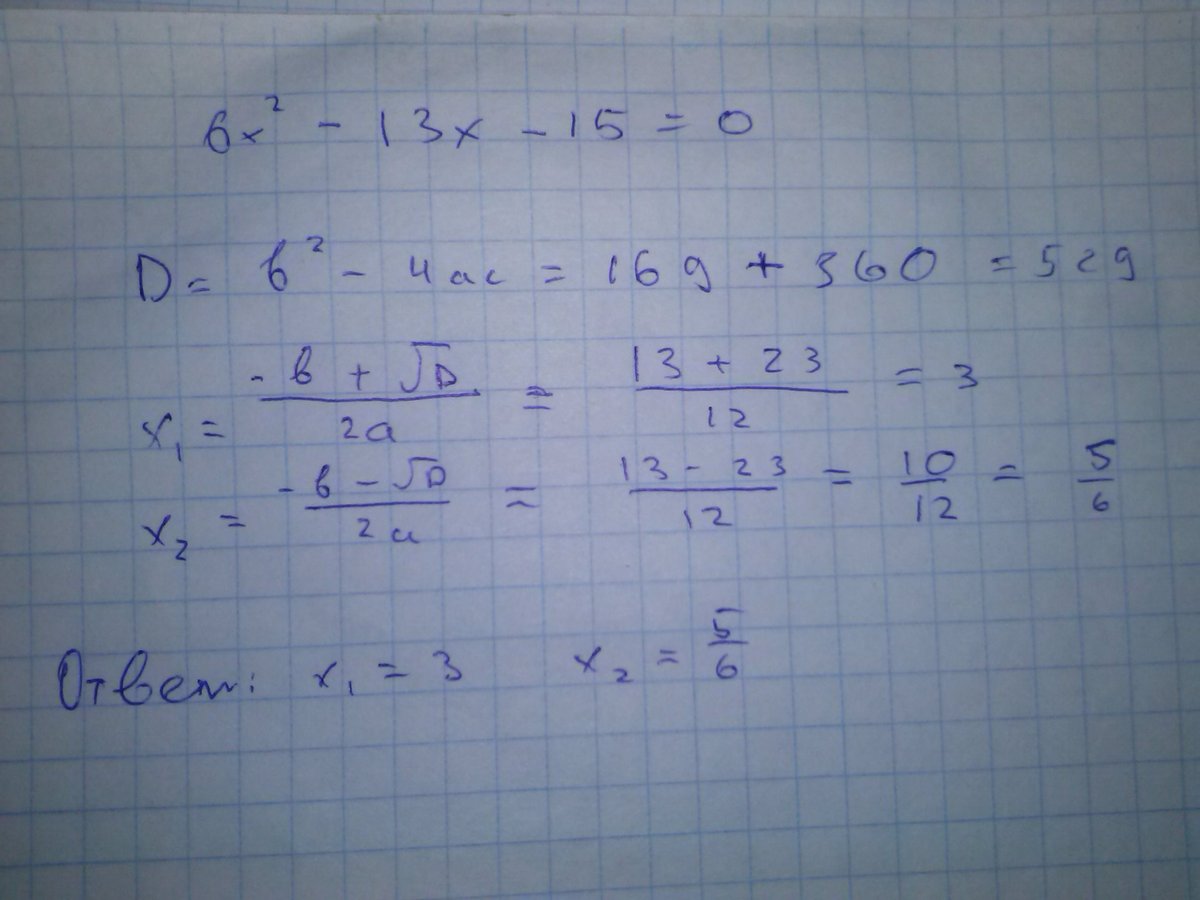 6x² - 13x - 15 = 0
D = b² - 4ac = 169 + 360 = 529
x₁ = (-b + √D)/(2a) = (13 + 23)/12 = 3
x₂ = (-b - √D)/(2a) = (13 - 23)/12 = 10/12 = 5/6
Ответ: x₁ = 3 x₂ = 5/6